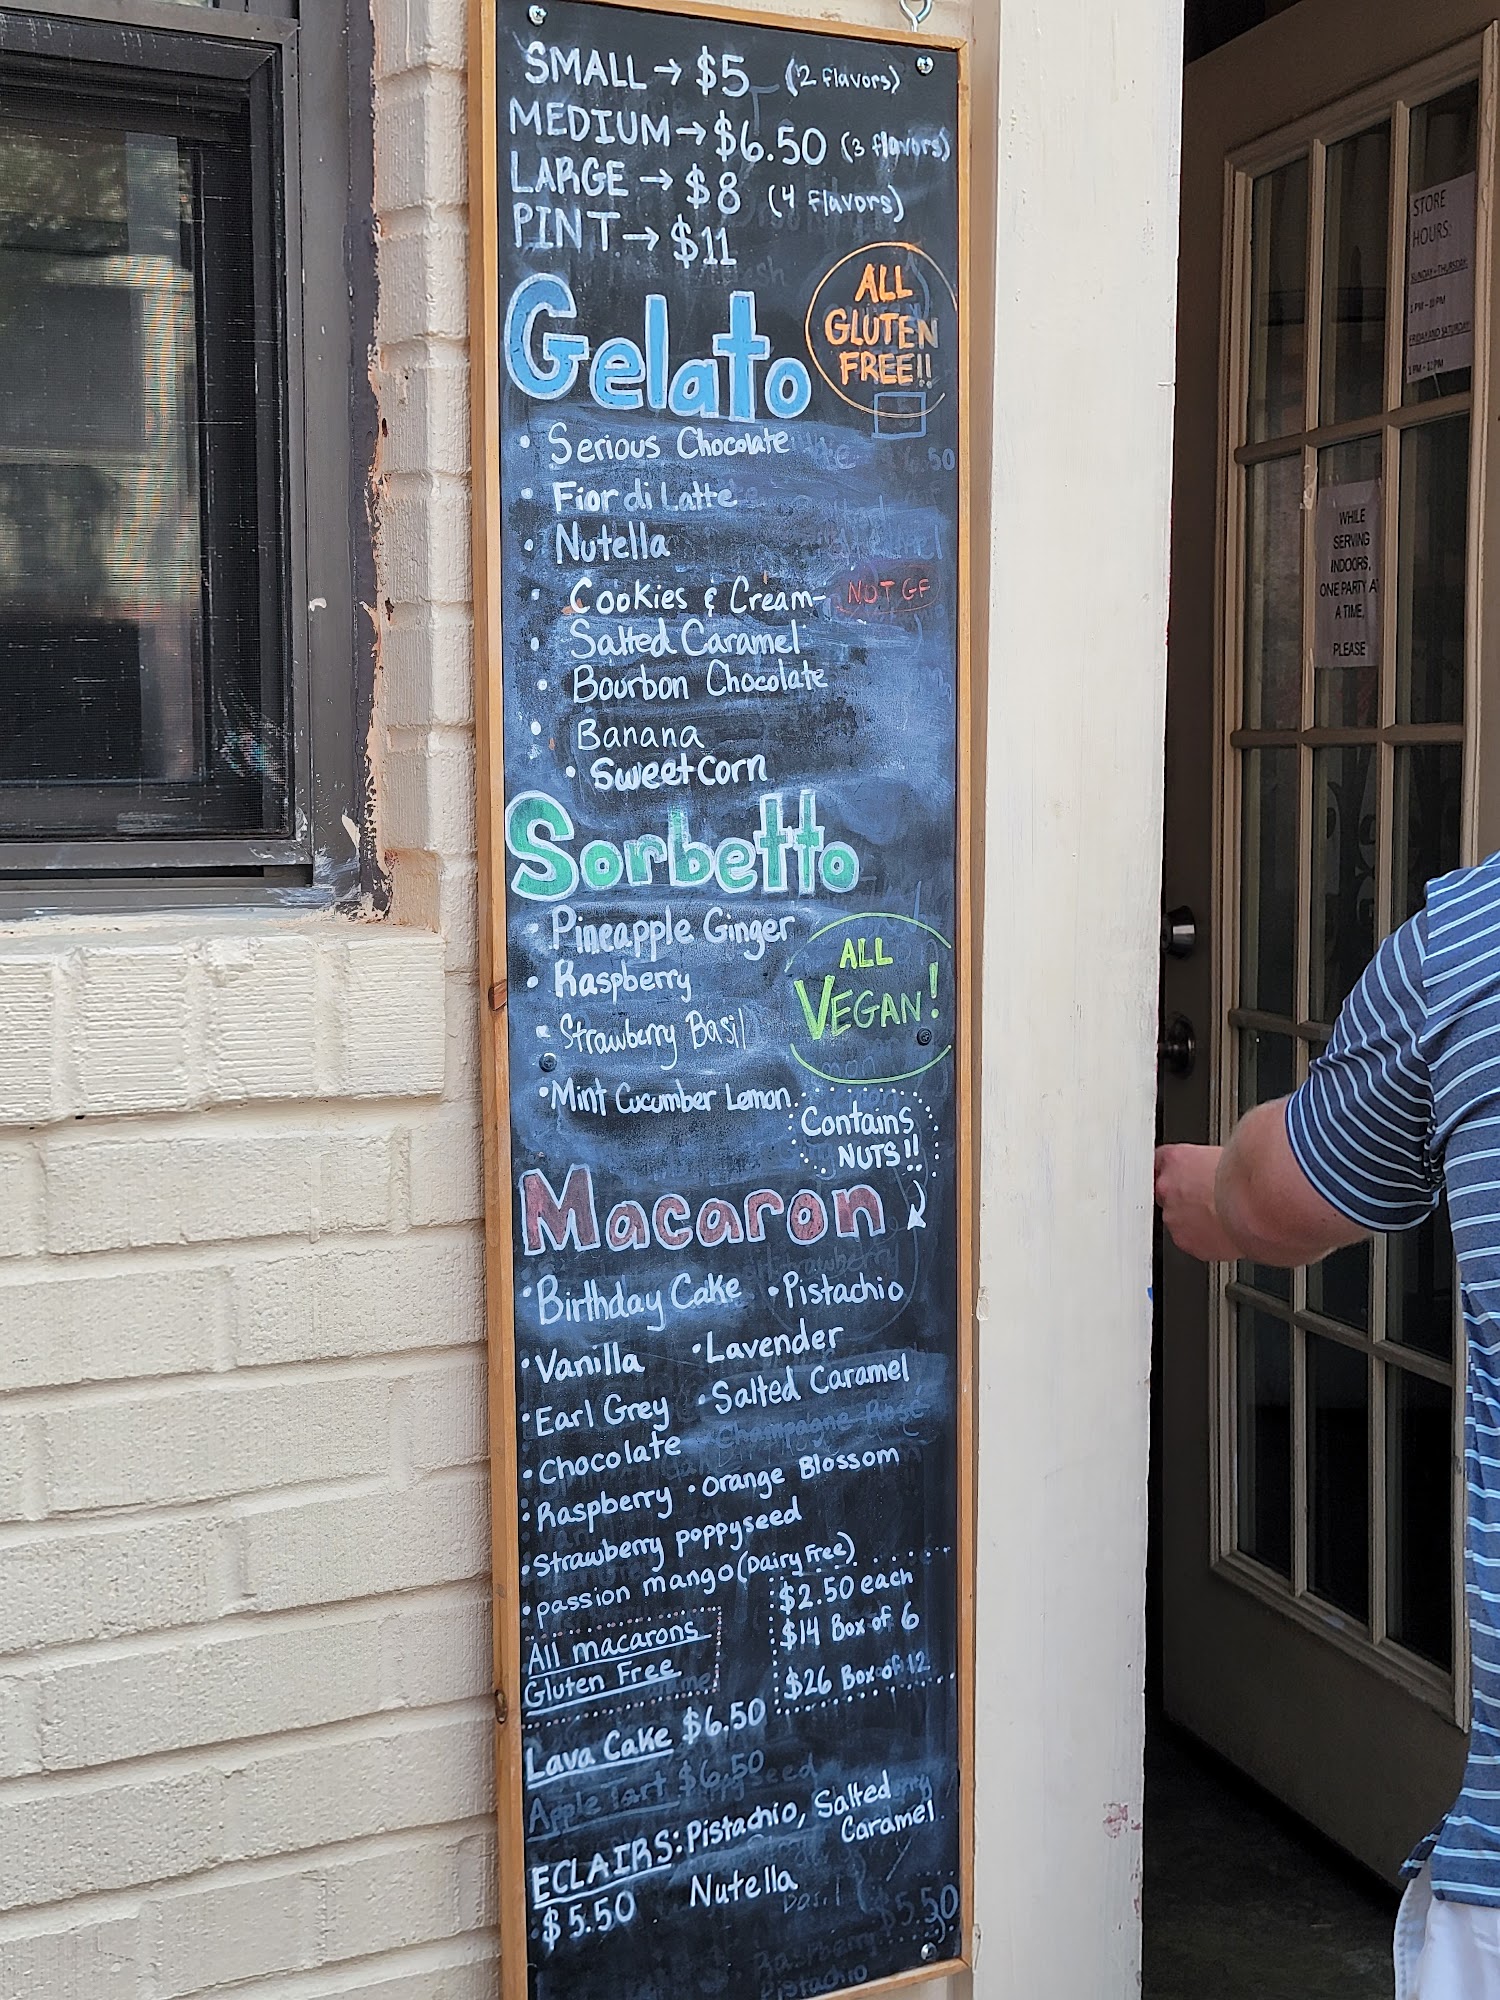 SMALL → $5 (2 flavors)
MEDIUM → $6.50 (3 flavors)
LARGE → $8 (4 flavors)
PINT → $11
ALL
GLUTEN
FREE!!
Gelato
• Serious Chocolate
• Fior di Latte
• Nutella
• Cookies & Cream - NOT GF
• Salted Caramel
• Bourbon Chocolate
• Banana
• Sweet Corn
Sorbetto
• Pineapple Ginger
• Raspberry
• Strawberry Basil
• Mint Cucumber Lemon
ALL
VEGAN!
Contains
NUTS!!
Macaron
• Birthday Cake • Pistachio
• Vanilla • Lavender
• Earl Grey • Salted Caramel
• Chocolate Champagne Rosé
• Raspberry • Orange Blossom
• Strawberry poppyseed
• passion mango (Dairy Free)
All macarons
Gluten Free
$2.50 each
$14 Box of 6
$26 Box of 12
Lava Cake $6.50
Apple Tart $6.50
ECLAIRS: Pistachio, Salted
Caramel
$5.50 Nutella
$5.50
Raspberry
Pistachio
STORE
HOURS:
SUNDAY - THURSDAY:
1 PM - 10 PM
FRIDAY AND SATURDAY
1 PM - 11 PM
WHILE
SERVING
INDOORS,
ONE PARTY AT
A TIME,
PLEASE